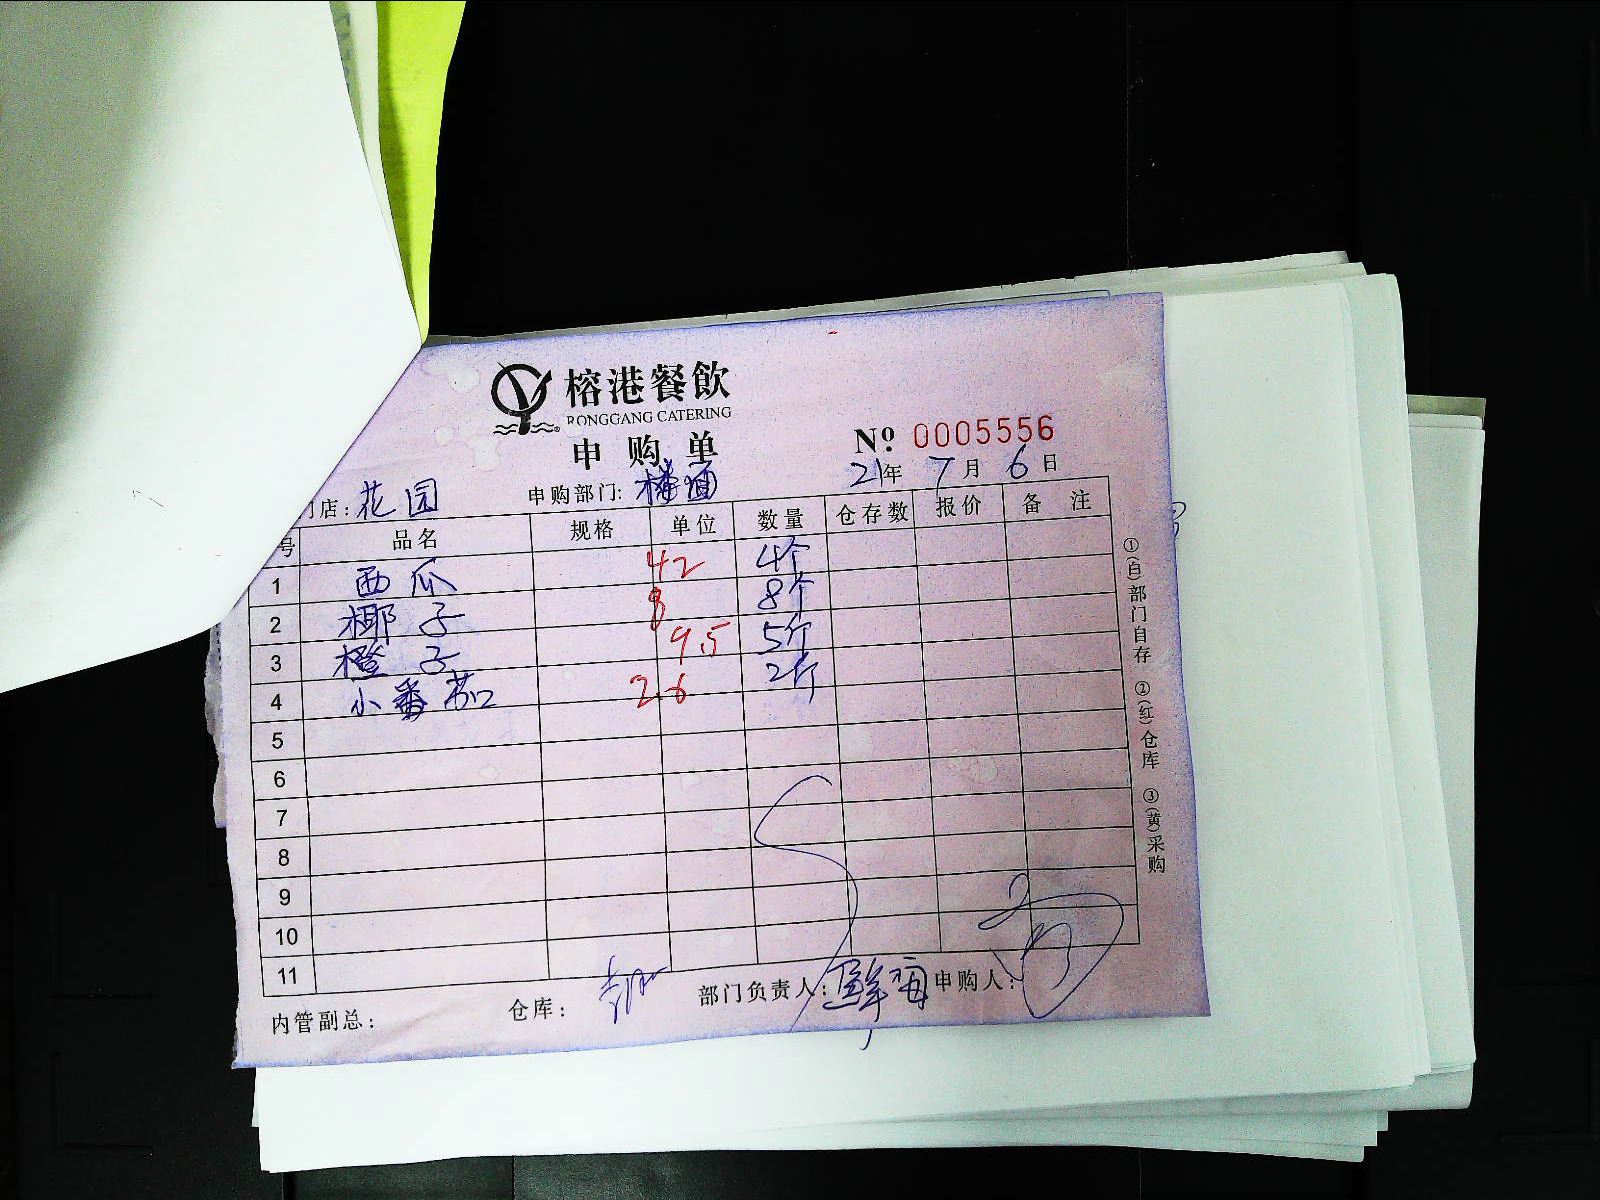 榕港餐飲
RONGGANG CATERING
申购单
№ 0005556
21年 7月 6日
门店: 花园 申购部门: 楼面
号 品名 规格 单位 数量 仓存数 报价 备注
1 西瓜 42 4个
2 椰子 8 8个
3 橙子 9.5 5斤
4 小番茄 2.6 2斤
5
6
7
8
9
10
11
内管副总: 仓库: 部门负责人: 申购人:
①(白)部门自存 ②(红)仓库 ③(黄)采购